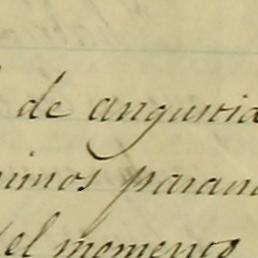 de angustia
nimos param
el momento